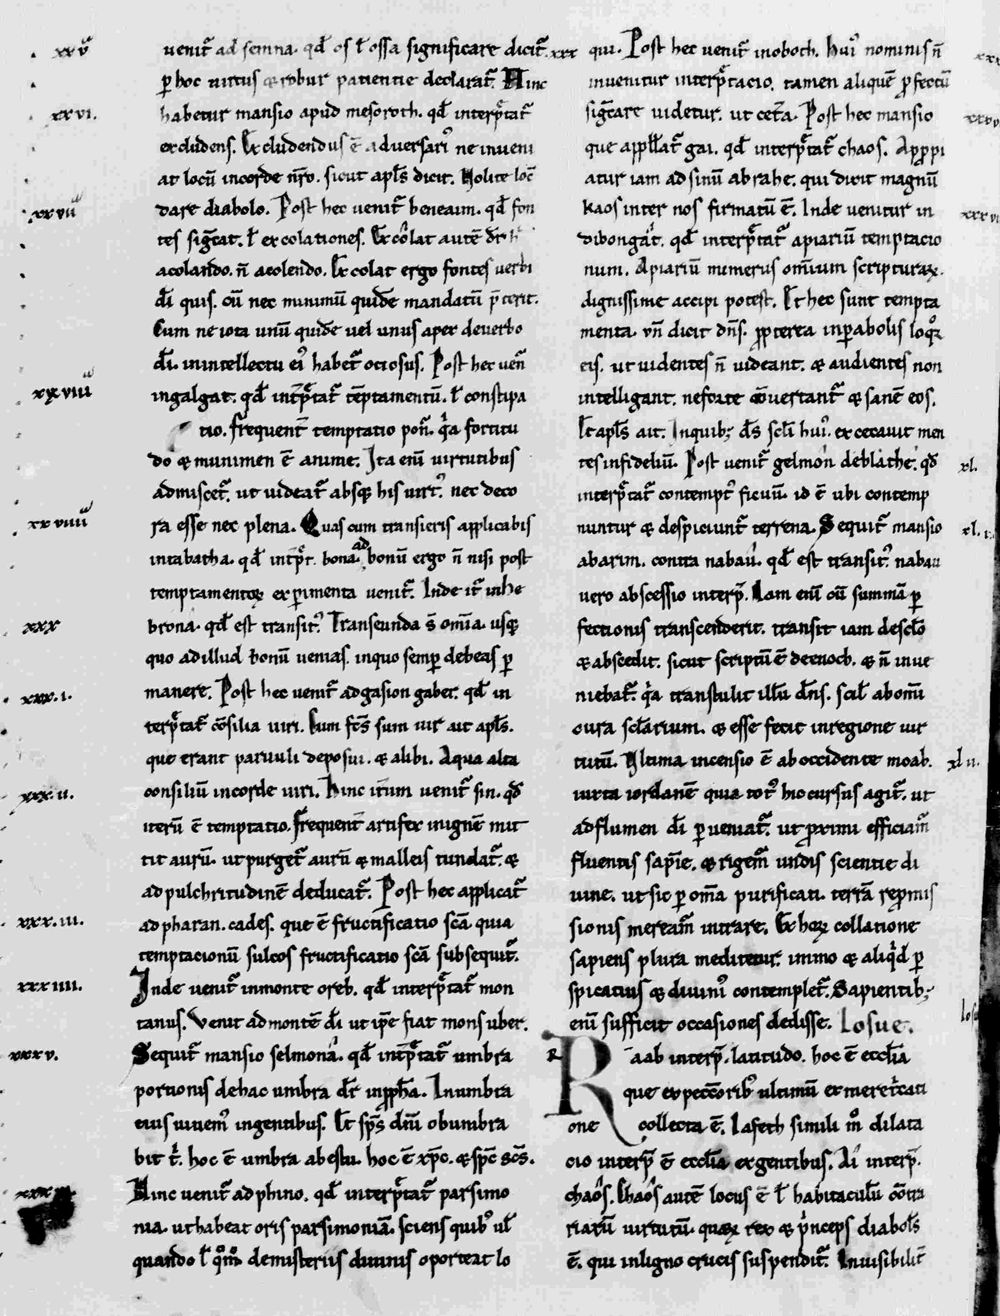 xxv
venit᷑ ad semna. qđ os ł ossa significare dicit᷑.
ꝑ hoc uirtus & robur patientie declarat᷑. Hinc
xxvi.
habetur mansio apud mesoroth. qđ interp̃tat᷑
excludens. Excludendus ẽ adversari᷒ ne inueni
at locũ in corde nr̃o. sicut apl̃s dicit. Nolite locũ
xxvii
dare diabolo. Post hec uenit᷑ beneaim. qđ fon
tes sig̃cat. ł excolationes. Excolat autẽ
acolando. ñ acolendo. Excolat ergo fontes uerbi
dĩ quis. cũ nec minimũ quidẽ mandatũ p̃terit.
Cum ne iota unũ quidẽ uel unus apex de uerbo
dĩ. in intellectu ei᷒ habet᷑ ociosus. Post hec uen̄
xxviii
in galgat. qđ int̃p̃tat᷑ tẽptamentũ. ł constipa
tio. frequent᷑ temptatio pon̄. q̃a fortitu
do & munimen ẽ anime. Ita enĩ uirtutibus
admiscet᷑. ut uideat᷑ absqꝫ his uirt᷒. nec deco
xxviiii
ra esse nec plena. Quas cum transieris applicabis
in tabatha. qđ int̃p̃t᷑. bona. ad bonũ ergo ñ nisi post
temptamentoꝝ experimenta uenit᷑. Inde it᷑ in he
xxx
brona. qđ est transit᷒. Transeunda s̃ om̃ia. usqꝫ
quo ad illud bonũ uenias. in quo semꝑ debeas ꝑ
xxx.i.
manere. Post hec uenit᷑ ad gasion gaber. qđ in
terp̃tat᷑ cõsilia uiri. Cum fc̃s sum uir ait apl̃s.
que erant paruuli deposui. & alibi. Aqua alta
xxx.ii.
consiliũ in corde uiri. Hinc itũm uenit᷑ sin. qđ
iterũ ẽ temptatio. frequent᷑ artifex in ignẽ mit
tit aurũ. ut purget᷑ aurũ & malleis tundat᷑. &
ad pulchritudinẽ deducat᷑. Post hec applicat᷑
xxx.iii.
ad pharan. cades. que ẽ fructificatio sc̃a. quia
temptacionũ sulcos fructificatio sc̃a subsequit᷑.
xxxiiii.
Inde uenit᷑ in monte oreb. qđ interp̃tat᷑ mon
tanus. Venit ad montẽ dĩ ut ip̃e fiat mons uber.
xxxv.
Sequit᷑ mansio selmona. qđ int̃p̃tat᷑ umbra
portionis de hac umbra dr̃ in pp̃ha. In umbra
eius uiuem᷒ in gentibus. Et sp̃s dñi obumbra
bit t᷑. hoc ẽ umbra ab estu. hoc ẽ xp̃c. & sp̃c sc̃s.
Hinc uenit᷑ ad phino. qđ interp̃tat᷑ parsimo
nia. ut habeat oris parsimoniã. sciens quib᷒ uł
quando ł q̃m̃o de misteriis diuinis oporteat lo
xxx
qui. Post hec uenit᷑ in oboth. hui᷒ nominis ñ
inuenitur interp̃tacio. tamen aliquẽ ꝓfectũ
sig̃care uidetur. ut cet̃a. Post hec mansio
que app̃llat᷑ gai. qđ interp̃tat᷑ chaos. App̃pi
atur iam ad sinũ abrahe. qui dicit magnũ
kaos inter nos firmatũ ẽ. Inde uenitur in
dibongat. qđ interp̃tat᷑ apiariũ temptacio
num. Apiariũ numerus om̃ium scripturaꝝ.
dignissime accipi potest. Et hec sunt tempta
menta. uñ dicit dñs. ꝓpterea in parabolis loq̃r
eis. ut uidentes ñ uideant. & audientes non
intelligant. ne forte cõuertant᷑ & sanẽ eos.
Et apl̃s ait. In quibꝫ d̃s sc̃li hui᷒. excecauit men
xl.
tes infideliũ. Post uenit᷑ gelmon deblathe. qđ
interp̃tat᷑ contempt᷒ ficuũ. id ẽ ubi contemp
xl.i.
nuntur & despiciunt᷑ terrena. Sequit᷑ mansio
abarim. contra nabau. qđ est transit᷒. nabau
uero abscessio interp̃. Nam enĩ cũ summã ꝑ
fectionis transcenderit. transit iam de sc̃lo
& abscedit. sicut scriptũ ẽ de enoch. & ñ inue
niebat᷑. q̃a transtulit illũ dñs. scil̃ ab om̃i
cura sc̃larium. & esse fecit in regione uir
xl ii.
tutũ. Ultima incensio ẽ ab occidente moab.
iuxta iordanẽ quia tot᷒ hic cursus agit᷑. ut
ad flumen dĩ perueniat᷑. ut proximi efficiam᷒
fluentis sapĩe. & rigem᷒ undis scientie di
uine. ut sic ꝑ om̃a purificati. terrã rep̃mis
sionis meream᷒ intrare. Ex hoꝝ collatione
sapiens plura meditetur. immo & aliq̃d ꝑ
spicatius & diuini᷒ contemplet᷑. Sapientibꝫ
enĩ sufficit occasiones dedisse. Iosue.
Raab interp̃. latitudo. hoc ẽ eccl̃ia
que ex peccoribꝰ ultimũ ex meretricati
one collecta ẽ. Iafeth simili m̃o dilata
cio interp̃ ẽ eccl̃ia ex gentibus. Ai interp̃.
chaos. Chaos autẽ locus ẽ ł habitaculũ cõtra
riarũ uirtutũ. quaꝝ rex & p̃nceps diabol᷒
ẽ. qui in ligno crucis suspendit᷑. Inuisibilit᷑